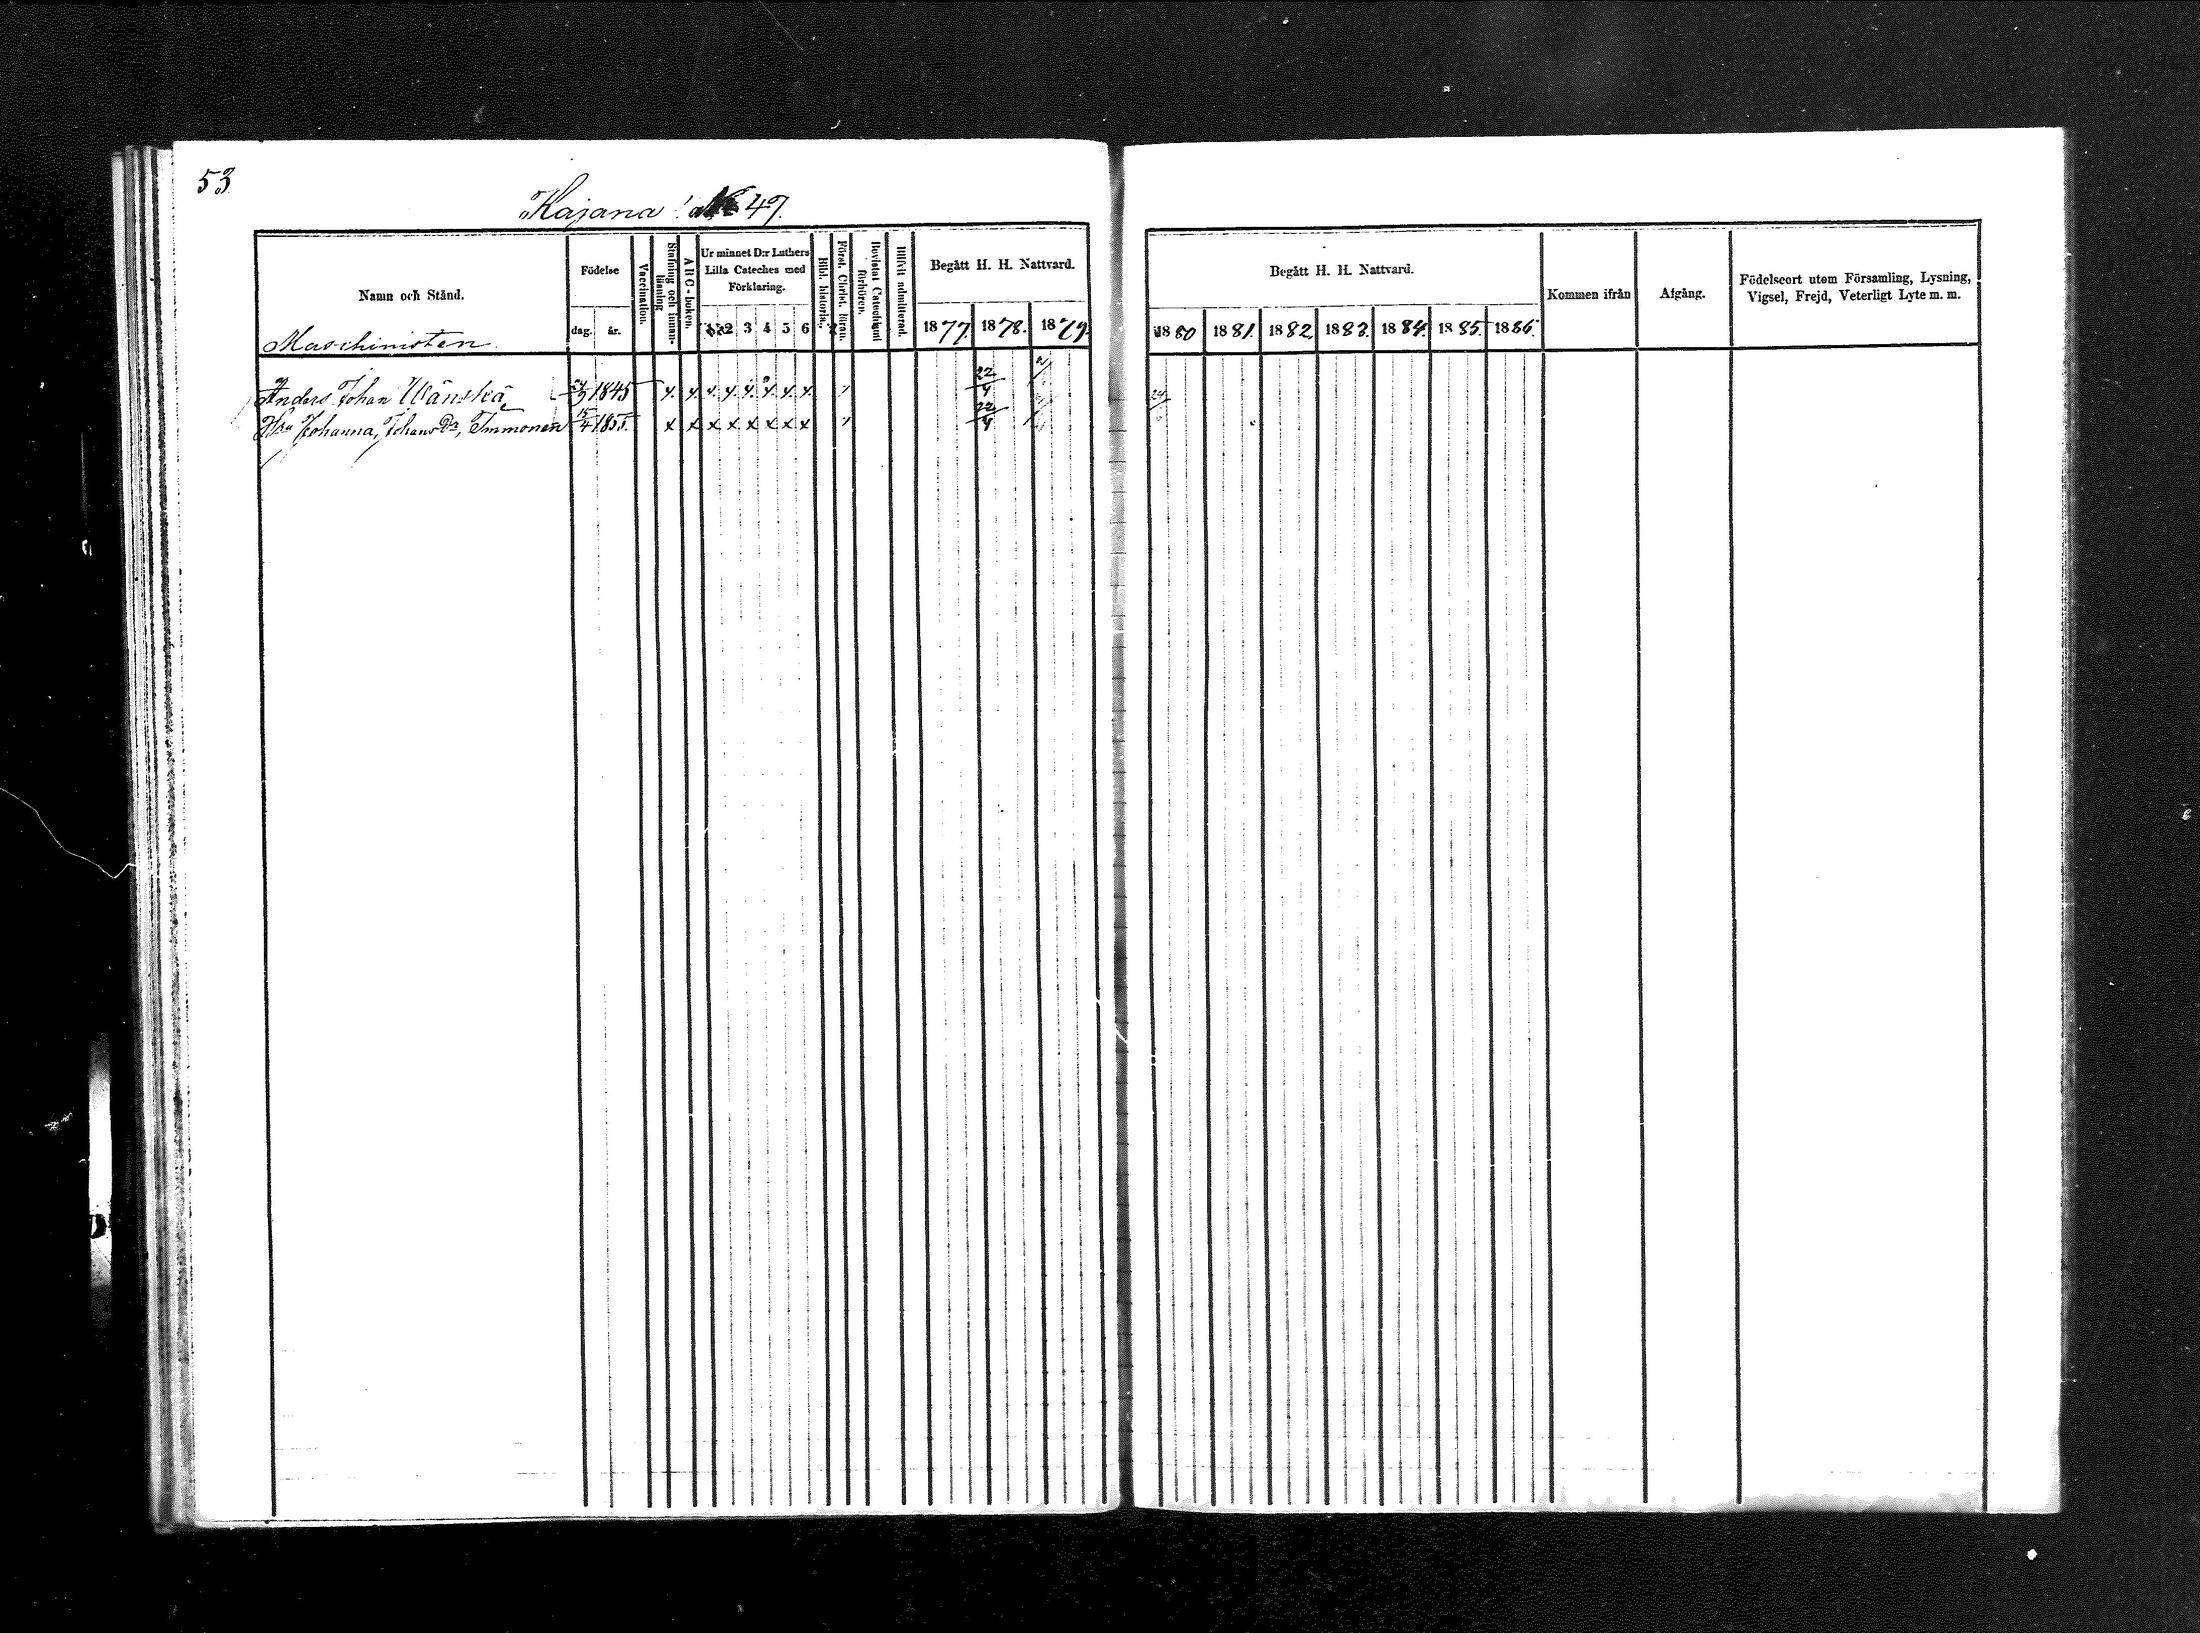 53
Kajana № 47.
Namn och Stånd.
Födelse
dag. år.
Vaccination.
Stafning och innan-läsning
A B C - boken.
Ur minnet D:r Luthers Lilla Cateches med Förklaring.
1 2 3 4 5 6
Bibl. historia.
Först. Christ. läran.
Bevistat Catechismi förhören.
Blifvit admitterad.
Begått H. H. Nattvard.
1877. 1878. 1879.
Begått H. H. Nattvard.
1880 1881. 1882. 1883. 1884. 1885. 1886.
Kommen ifrån
Afgång.
Födelseort utom Församling, Lysning, Vigsel, Frejd, Veterligt Lyte m. m.
Maschinisten
Anders Johan Wänskä 1845 22/4
Hu Johanna, Johans Dr, Immonen 15/4 1855. x x x x x x x x 22/4